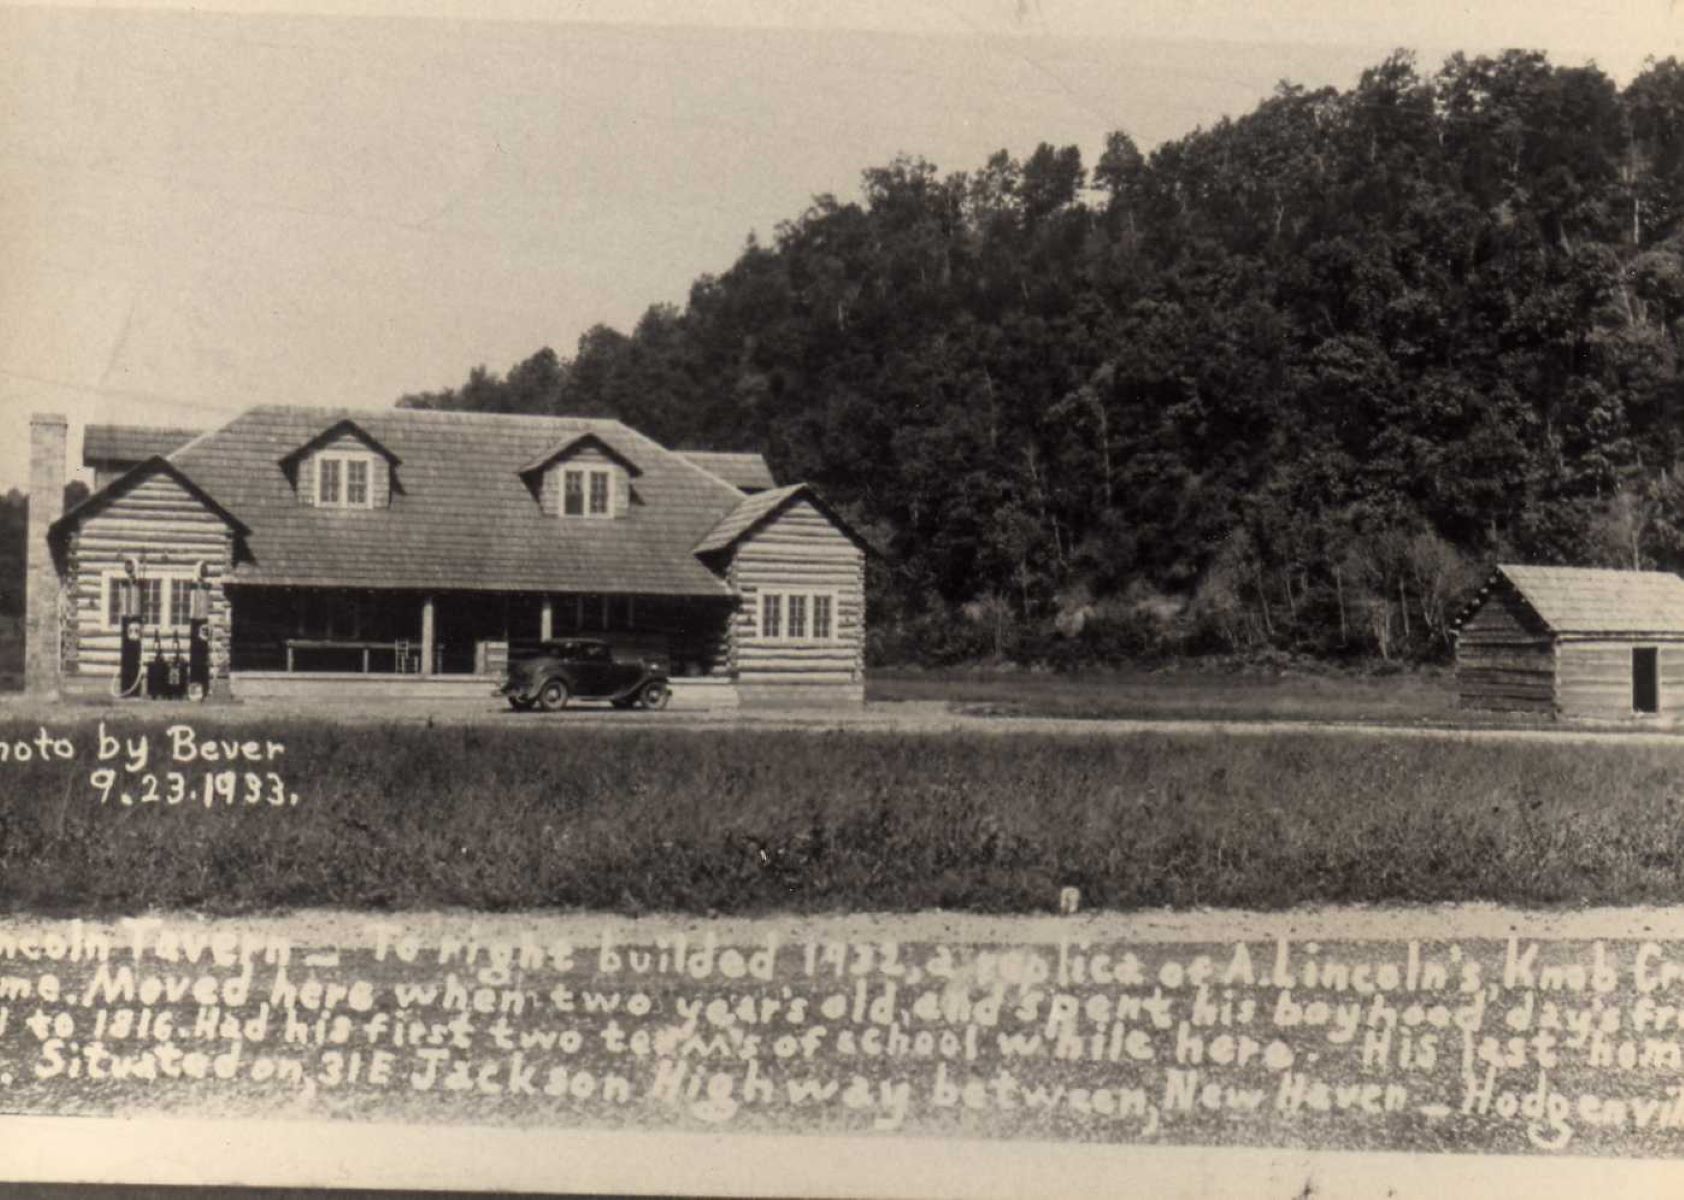 hoto by Bever
9.23.1933.
incoln Tavern – To right builded 1932, a replica of A. Lincoln's, Knob Cr
me. Moved here when two year's old, and spent his boyhood day's fr
1 to 1816. Had his first two term's of school while here. His last hom
. Situated on, 31E Jackson Highway between, New Haven – Hodgenvil